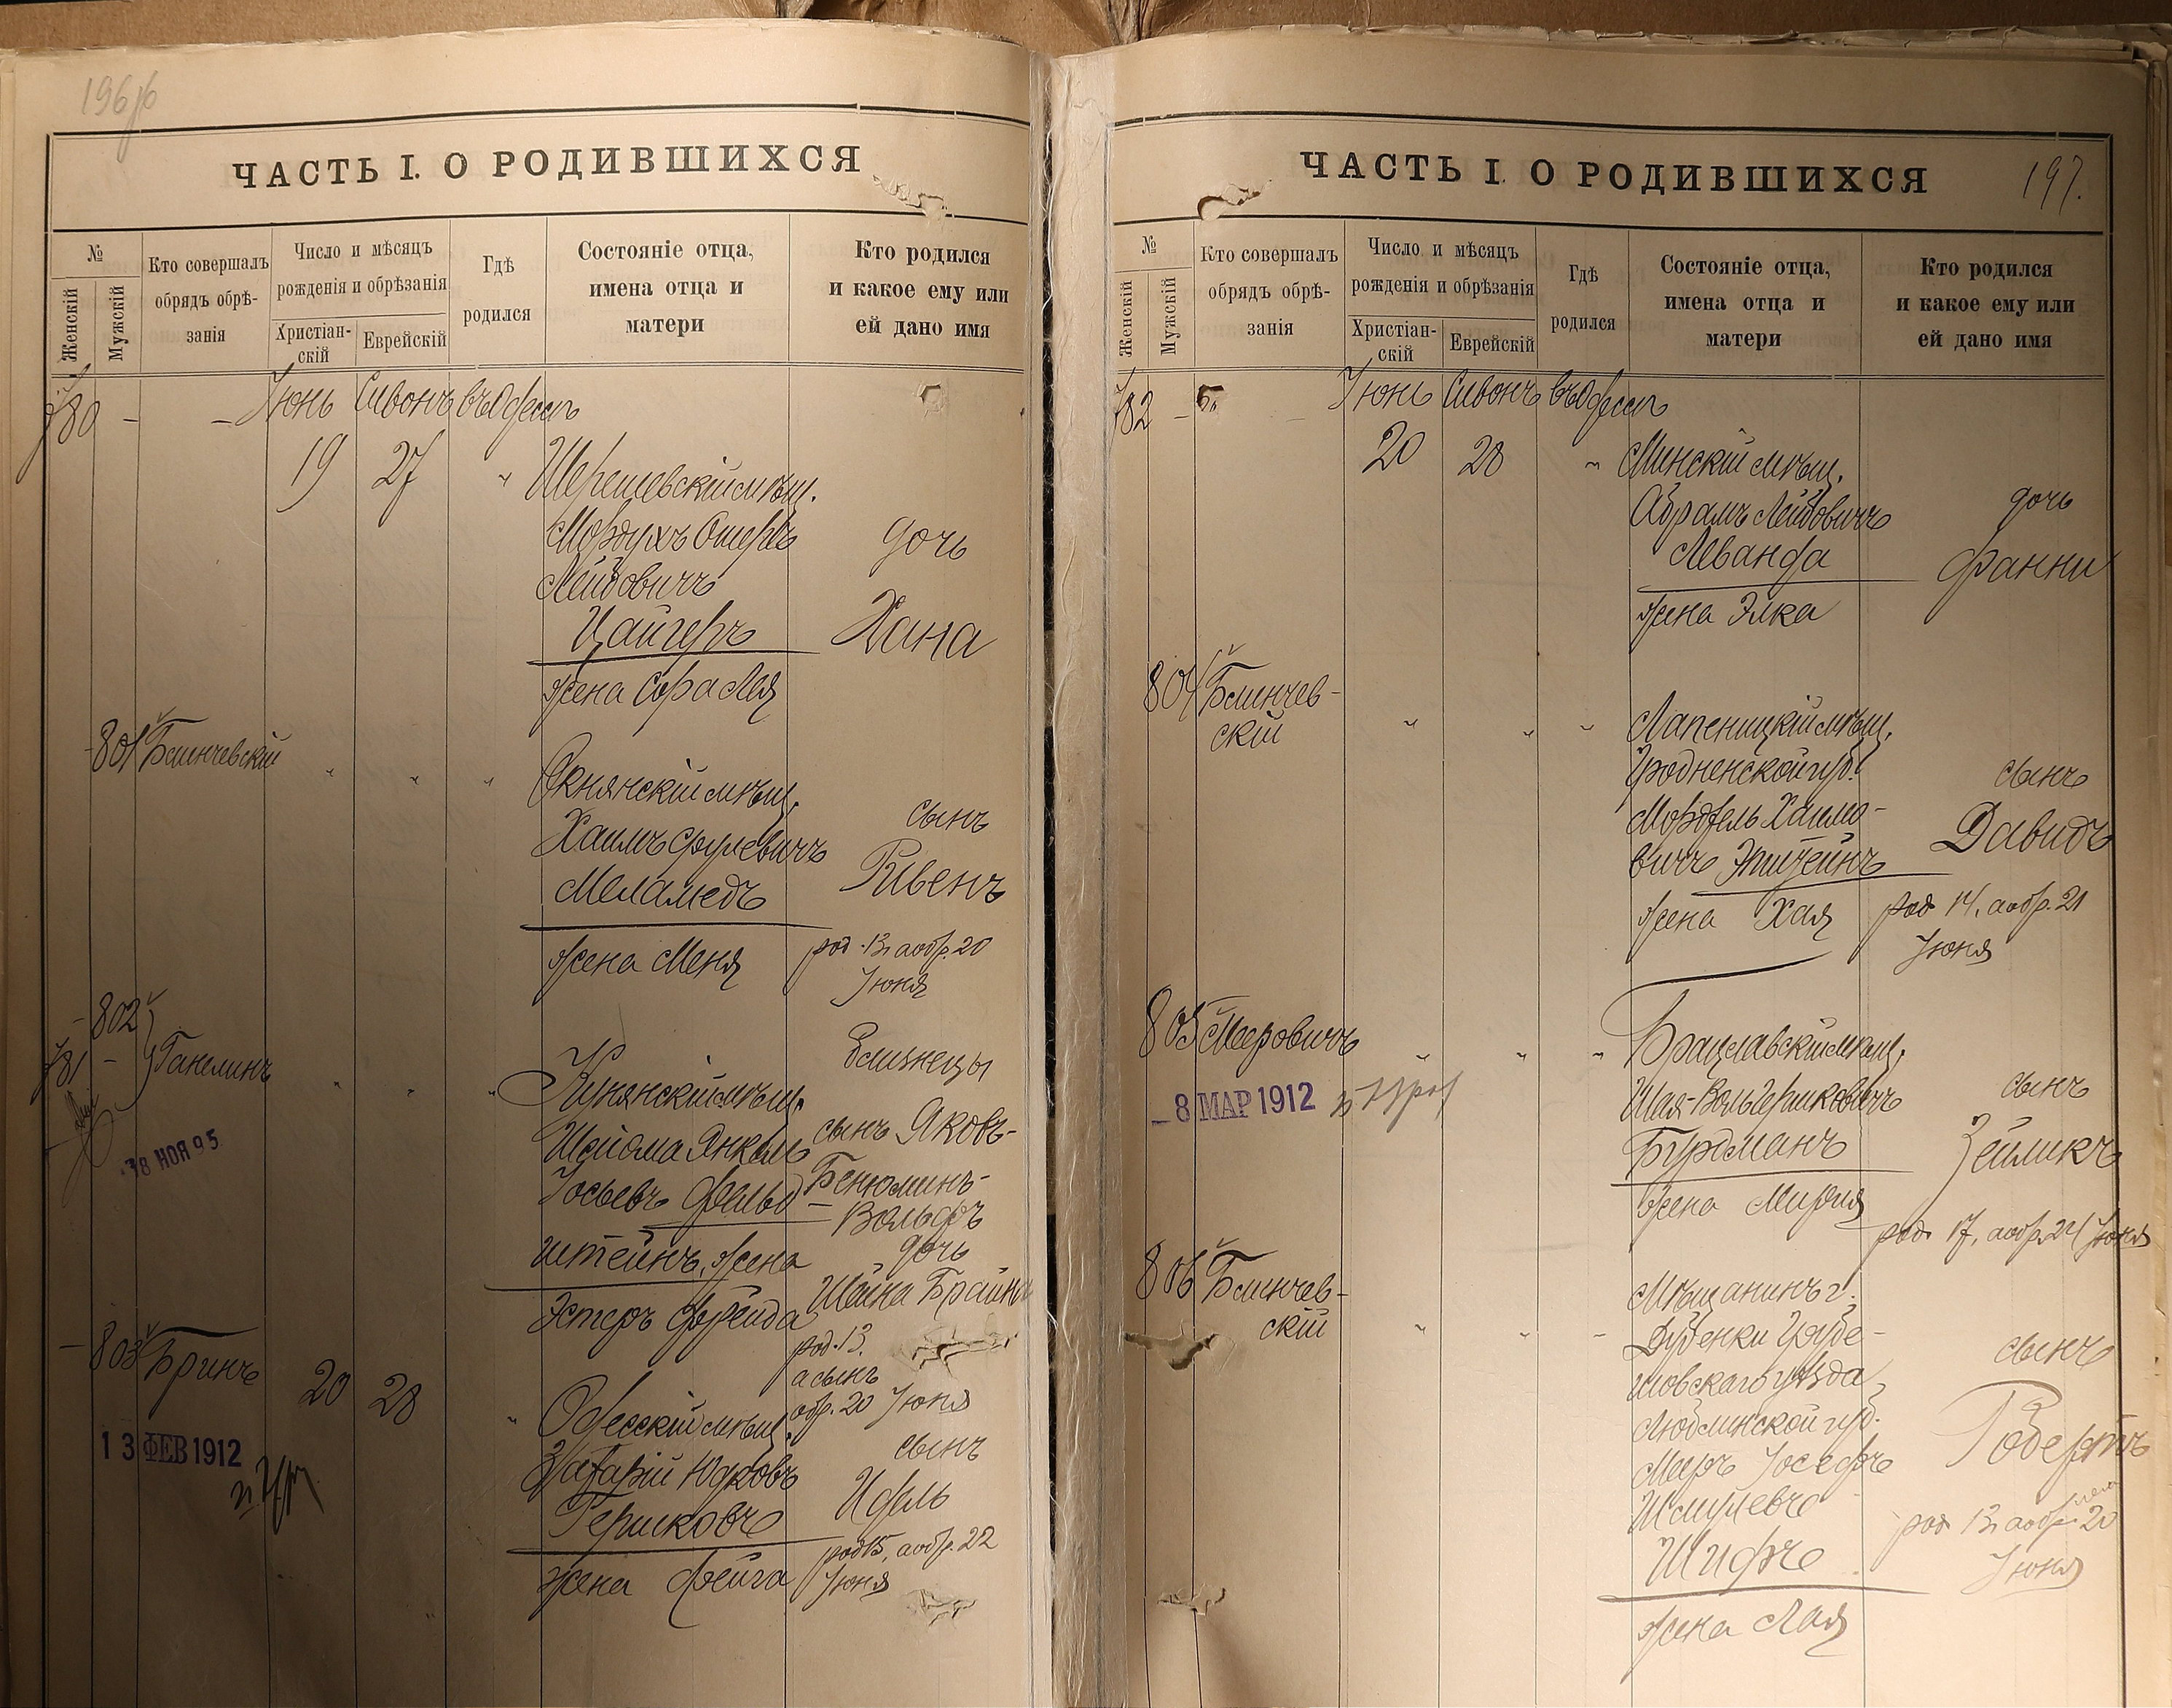 196
ЧАСТЬ I. О РОДИВШИХСЯ
№
Женскій
Мужскій
Кто совершалъ
обрядъ обрѣ-
занія
Число и мѣсяцъ
рожденія и обрѣзанія
Христіан-
скій
Еврейскій
Гдѣ
родился
Состояніе отца,
имена отца и
матери
Кто родился
и какое ему или
ей дано имя
780 - - Іюнь Сивонъ въ Одессѣ
19 27 " Шерешевскій мѣщ.
Мордухъ Ошеръ
Лейбовичъ
Цайгеръ
жена Сура Лея
дочь
Хана
- 801 Блинчевскій " " "
Окнянскій мѣщ.
Хаимъ Срулевичъ
Меламедъ
жена Меня
сынъ
Рувенъ
род. 13, а обр. 20
Іюня
- 802
781 - Ганелинъ " " "
18 НОЯ 95
Кунянскій мѣщ.
Шлёма Янкель
Іосьевъ Фельд-
штейнъ, жена
Эстеръ Фрейда
Близнецы
сынъ Яковъ-
Бенюминъ-
Вольфъ
дочь
Шейна Брайна
род. 13.
а сынъ
обр. 20 Іюня
- 803 Бринъ 20 28 "
13 ФЕВ 1912
Одесскій мѣщ.
Юдковъ
Гершковъ
жена Фейга
сынъ
Идель
род. 15, а обр. 22
Іюня
ЧАСТЬ I. О РОДИВШИХСЯ
197.
№
Женскій
Мужскій
Кто совершалъ
обрядъ обрѣ-
занія
Число и мѣсяцъ
рожденія и обрѣзанія
Христіан-
скій
Еврейскій
Гдѣ
родился
Состояніе отца,
имена отца и
матери
Кто родился
и какое ему или
ей дано имя
782 - Іюнь Сивонъ въ Одессѣ
20 28 " Минскій мѣщ.
Абрамъ Лейбовичъ
Леванда
жена Элка
дочь
Фанни
804 Блинчев-
скій " " "
Лапеницкій мѣщ.
Гродненской губ.
Мордхель Хаимо-
вичъ Эпштейнъ
жена Хая
сынъ
Давидъ
род. 14, а обр. 21
Іюня
805 Мееровичъ " " "
- 8 МАР 1912
Брацлавскій мѣщ.
Шая-Вольъ Гершковичъ
Бурдманъ
жена Мирля
сынъ
Зейликъ
род. 17, а обр. 24 Іюня
806 Блинчев-
скій " " "
Мѣщанинъ г.
Дубенки Грубе-
шовскаго уѣзда,
Люблинской губ.
Меръ Іосефъ
Шмулевъ
Шифъ
жена Лая
сынъ
Робертъ
род. 13, а обр. 20
Іюня